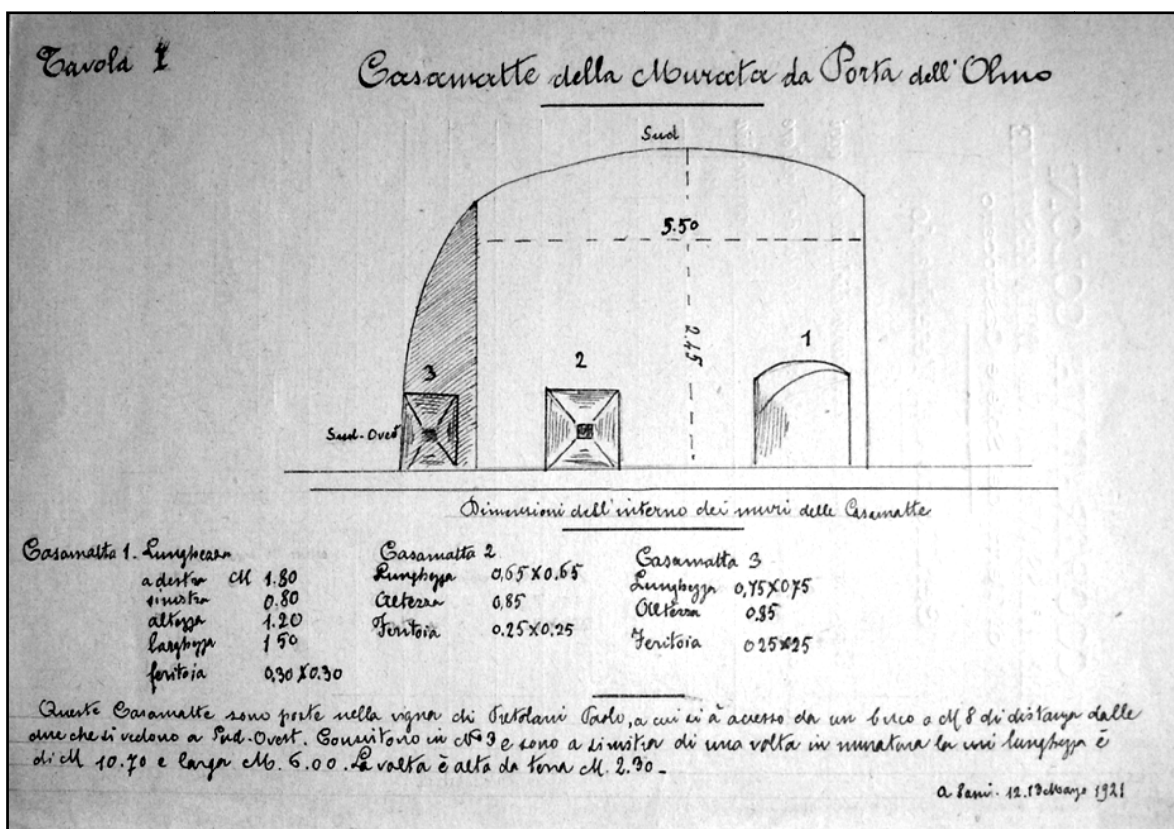 Tavola I
Casamatte della Murata da Porta dell'Olmo
Sud
5.50
2.45
1
2
3
Sud-Ovest
Dimensioni dell'interno dei muri delle Casamatte
Casamatta 1. Lunghezza
a destra M 1.80
sinistra 0.80
altezza 1.20
larghezza 1 50
feritoia 0,30 X 0.30
Casamatta 2
Lunghezza 0,65 X 0.65
Altezza 0,85
Feritoia 0.25 X 0,25
Casamatta 3
Lunghezza 0,75 X 075
Altezza 0,85
Feritoia 025 x 25
Queste Casamatte sono poste nella vigna di Pretolani Paolo, a cui si à accesso da un buco a M 8 di distanza dalle
due che si vedono a Sud-Ovest. Consistono in No 3 e sono a sinistra di una volta in muratura la cui lunghezza è
di M 10.70 e larga M. 6.00. La volta è alta da terra M. 2.30.
12.13 Marzo 1921